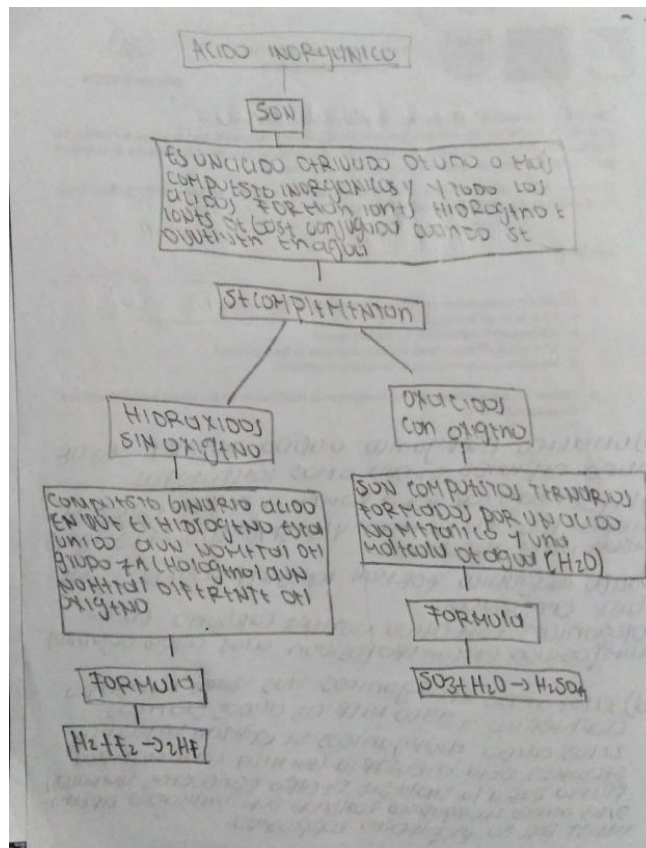 ACIDO INORGUNICO
SON
ES UN CICIDO DERIVADO DE UNO O MAS
COMPUESTO INORGUNICOS Y Y TODO LOS
ACIDOS FORMUN IONES HIDROGENO E
IONES SE BASE CONJUGADA CUANDO SE
DISUELVEN EN AGUA
SE COMPLEMENTAN
HIDRUXIDOS
SIN OXIGENO
OXUCIDOS
CON OXIGENO
COMPUESTO BINARIO ACIDO
EN QUE EL HIDROGENO ESTA
UNIDO A UN NO METAL DEL
GRUPO 7A (HALOGENO) A UN
NO METAL DIFERENTE DEL
OXIGENO
SON COMPUESTOS TERNARIOS
FORMADOS POR UN ACIDO
NO METALICO Y UNA
MOLECULA DE AGUA (H2O)
FORMULA
FORMULA
H2+F2→2HF
SO3+H2O→H2SO4